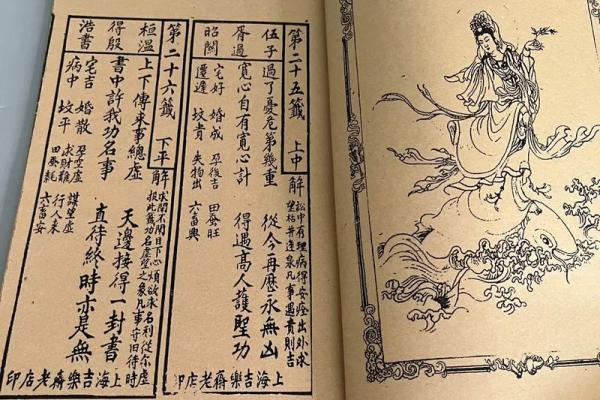 第二十五籤 上中
伍子胥過昭關
過了憂危第幾重 從今再歷永無凶
寬心自有寬心計 得遇高人護聖功
宅好 婚成 孕後吉 田蚕旺
坟貴 失物出 六畜興
解
訟中有理病得安痊出外求
望枯井逢泉凡事遇貴則吉
上海吉樂齋老店印
第二十六籤 下平
桓溫得殷浩書
上下傳來事總虛 天邊接得一封書
書中許我功名事 直待終時亦是無
宅吉 婚散 孕空虛 謀望虛
求財難 行人未
病中 坟平 田蚕耗 六畜安
解
求閑不閑日下心煩欲求名利從尔虛
投此籤功名虛望之象凡事守旧待時
上海吉樂齋老店印